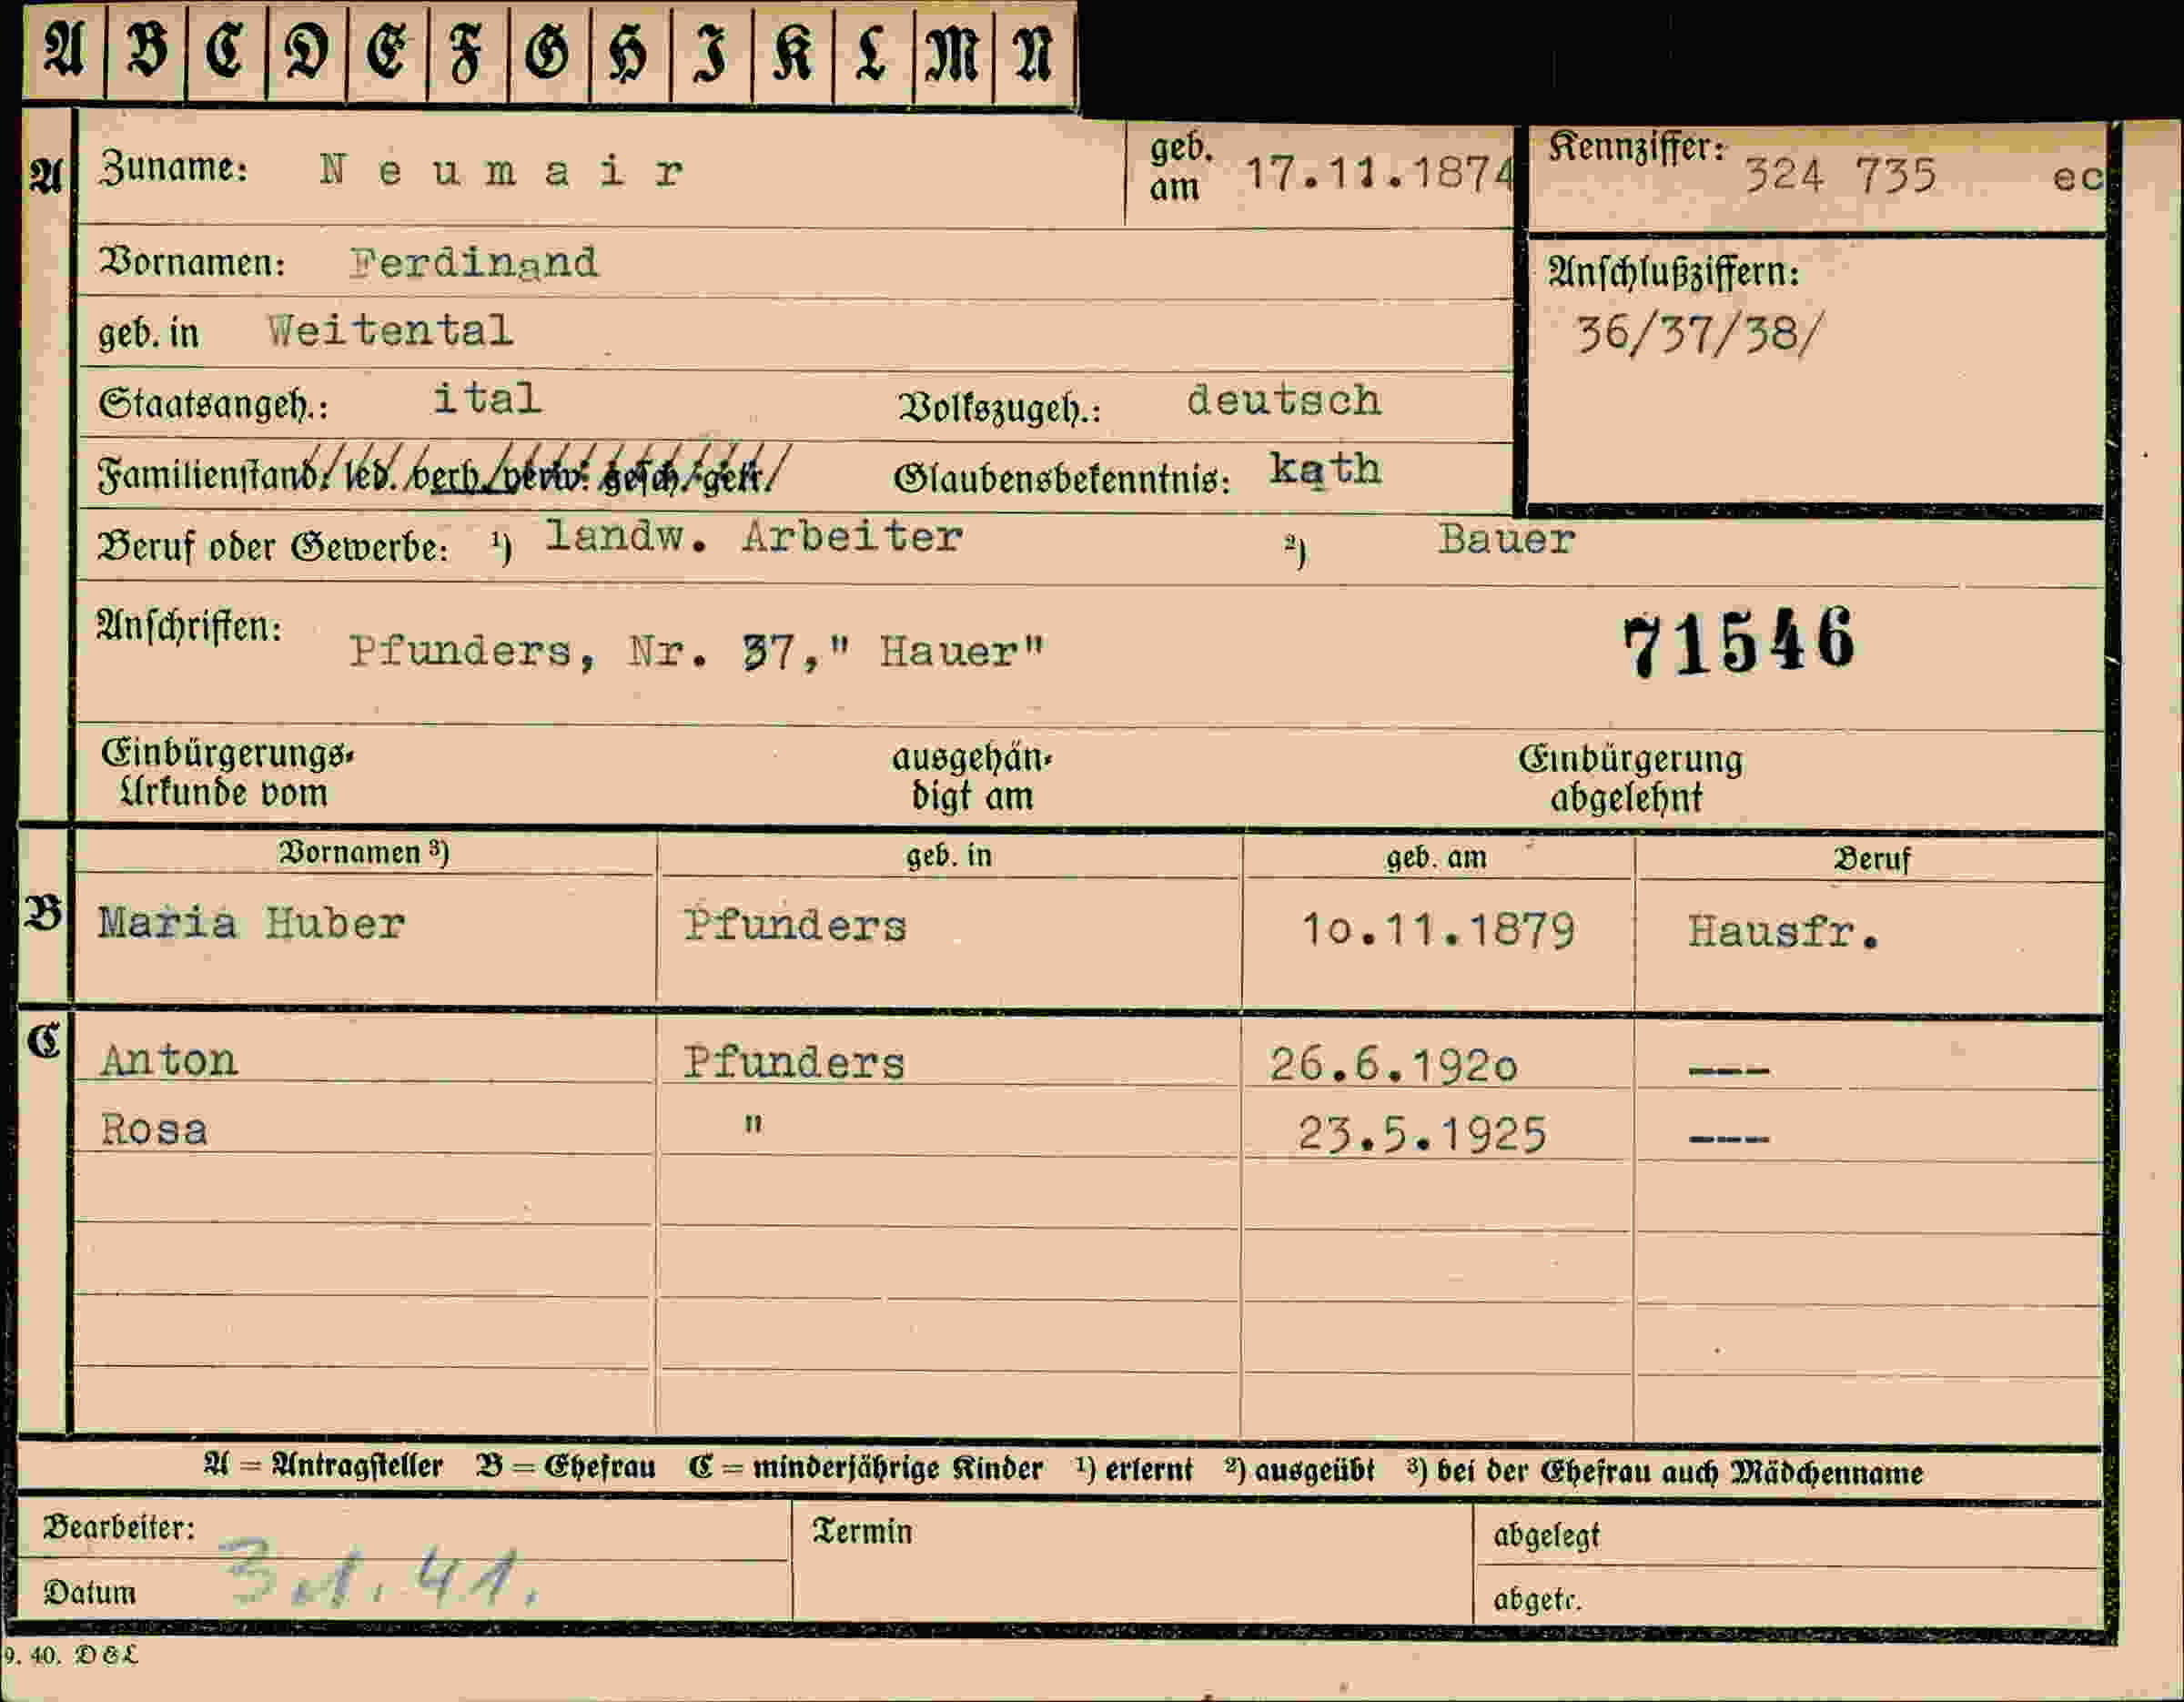 A B C D E F G H I K L M N
A Zuname: Neumair geb. am 17.11.1874 Kennziffer: 324 735 ec
Vornamen: Ferdinand
Anschlußziffern:
geb. in Weitental 36/37/38/
Staatsangeh.: ital Volkszugeh.: deutsch
Familienstand: led. verh. verw. gesch. getr. Glaubensbekenntnis: kath
Beruf oder Gewerbe: ¹) landw. Arbeiter ²) Bauer
Anschriften: Pfunders, Nr. 37," Hauer" 71546
Einbürgerungs- ausgehän- Einbürgerung
Urkunde vom digt am abgelehnt
Vornamen ³) geb. in geb. am Beruf
B Maria Huber Pfunders 1o.11.1879 Hausfr.
C Anton Pfunders 26.6.192o ---
Rosa " 23.5.1925 ---
A = Antragsteller B = Ehefrau C = minderjährige Kinder ¹) erlernt ²) ausgeübt ³) bei der Ehefrau auch Mädchenname
Bearbeiter: Termin abgelegt
Datum 3.1.41. abgetr.
9. 40. D&L